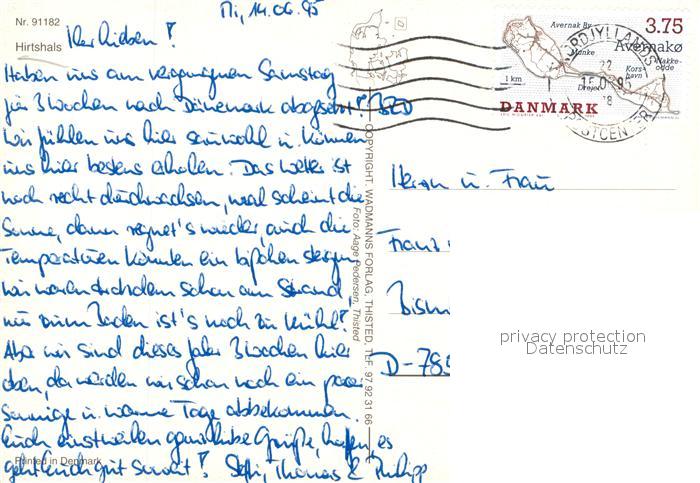 Nr. 91182
Hirtshals
Mi, 14.06.95
Ihr Lieben!
Haben uns am vergangenen Samstag
für 3 Wochen nach Dänemark abgesetzt!
Wir fühlen uns hier sauwohl u. können
uns hier bestens erholen. Das Wetter ist
noch recht durchwachsen, mal scheint die
Sonne, dann regnet's wieder, auch die
Temperaturen könnten ein bißchen steigen,
wir waren trotzdem schon am Strand,
nur zum Baden ist's noch zu kühl!
Aber wir sind dieses Jahr 3 Wochen hier
oben, da werden wir schon noch ein paar
sonnige u. warme Tage abbekommen.
Euch einstweilen ganz liebe Grüße, hoffen, es
geht Euch gut soweit! Steffi, Thomas & Philipp
Printed in Denmark
COPYRIGHT. WADMANNS FORLAG, THISTED. TLF. 97 92 31 66
Foto: Aage Pedersen, Thisted
3.75
Avernakø
Avernak By
Munke
Korshavn
Drejet
1 km
DANMARK
NORDJYLLANDS
POSTCENTER
15.06.95
BRD
Herrn u. Frau
Franz
Bism
D-78
privacy protection
Datenschutz